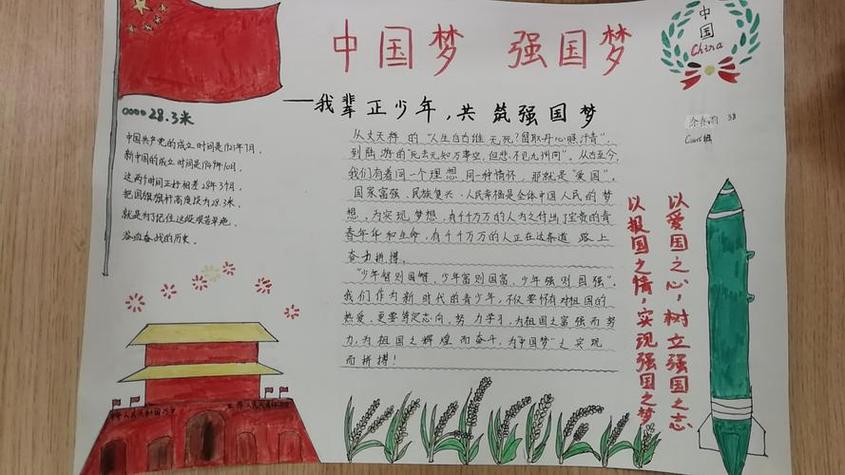 中国梦 强国梦
中国
China
——我辈正少年,共筑强国梦
28.3米
中国共产党的成立时间是1921年7月,
新中国的成立时间是1949年10月,
这两个时间正好相差28年3个月,
把国旗旗杆高度设为28.3米,
就是为了记住这段艰苦卓绝,
浴血奋战的历史。
从文天祥的“人生自古谁无死?留取丹心照汗青”,
到陆游的“死去元知万事空,但悲不见九州同”。从古至今,
我们有着同一个理想,同一种情怀,那就是“爱国”。
国家富强、民族复兴、人民幸福是全体中国人民的梦
想,为实现梦想,有千千万万的人为之付出了宝贵的青
春年华和生命,有千千万万的人正在这条道路上
奋力拼搏。
“少年智则国智,少年富则国富,少年强则国强”。
我们作为新时代的青少年,不仅要怀有对祖国的
热爱,更要笃定志向,努力学习,为祖国之富强而努
力,为祖国之辉煌而奋斗,为“中国梦”之实现
而拼搏!
以爱国之心,树立强国之志
以报国之情,实现强国之梦